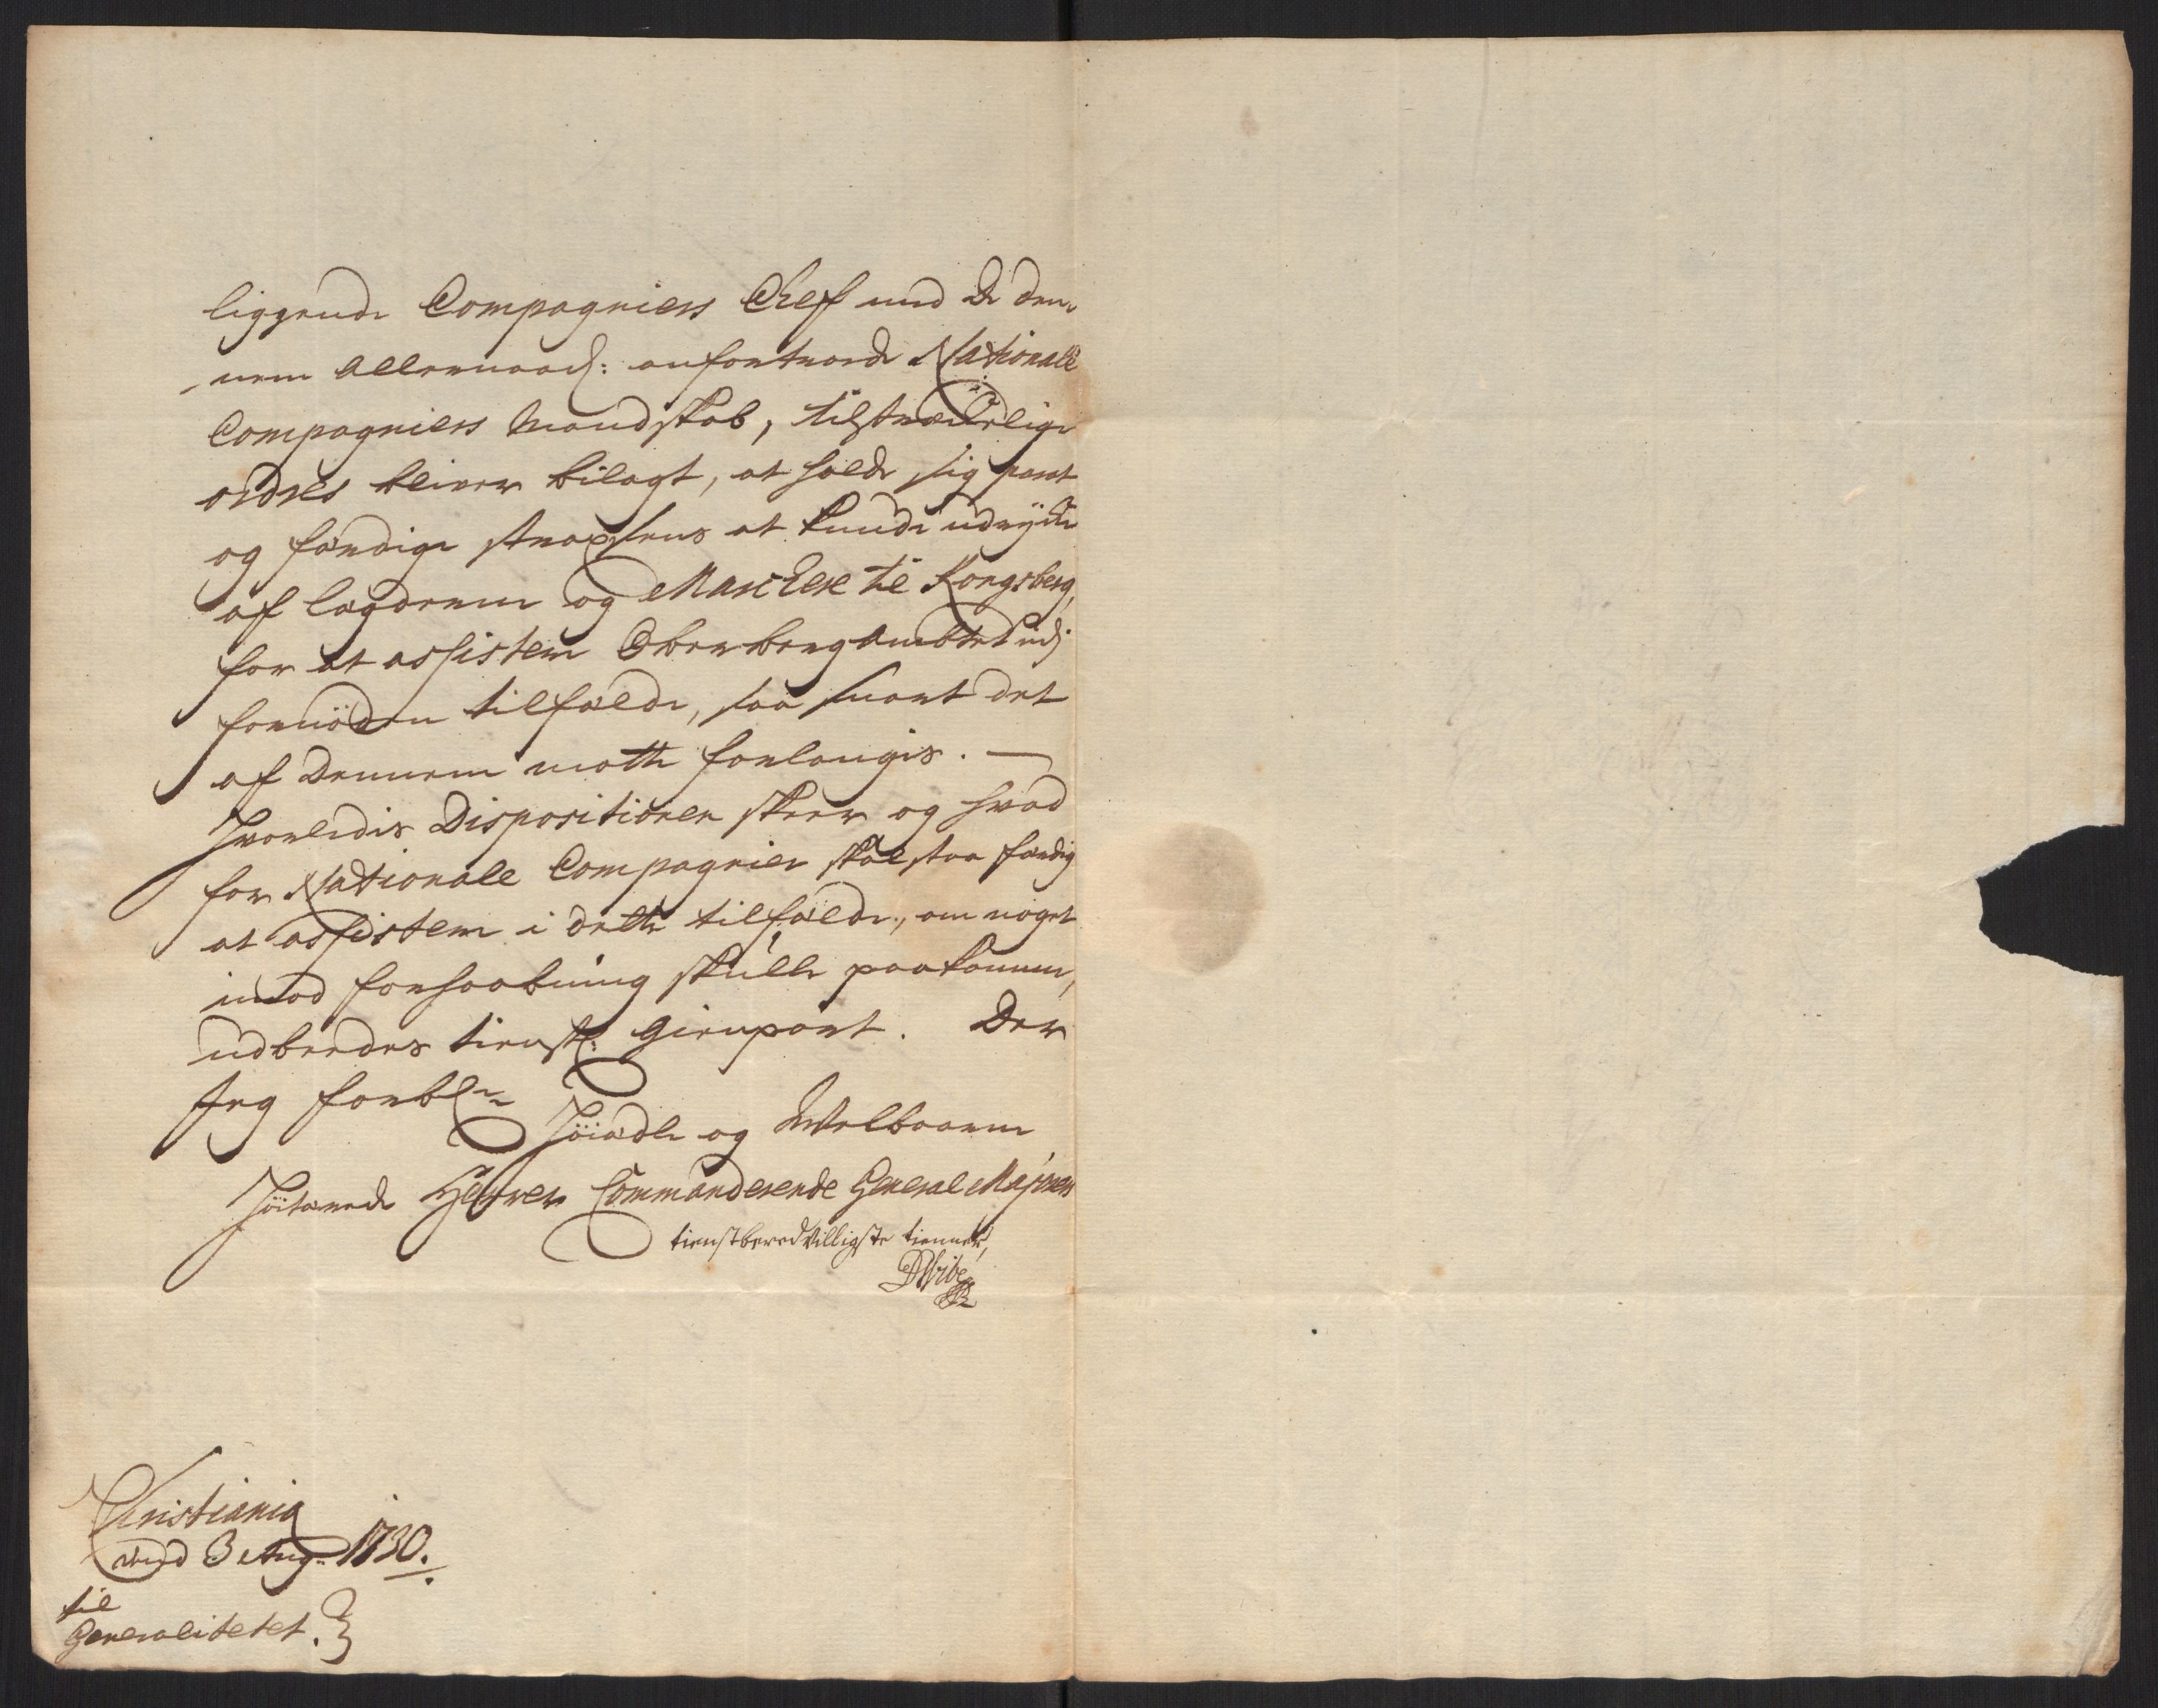 liggende Compagniers Chef med De den-
nem allernaad: anfortroede Nationale
Compagniers Mandskab, tilstrækkelige
ordres bliver bilagt, at holde sig parat
og færdige straxsens at kunde udrycke
af lægderne og Marchere til Kongsberg,
for at assistere Oberbergambtet udj
fornøden tilfælde, saa snart det
af Dennem motte forlanges. —
Hvorledis Dispositionen skeer og hvad
for Nationale Compagnier skal staa færdig
at assistere i dette tilfælde, om noget
imod forhaabning skulle paakomme,
udbeedes tienstl: Gienpart. Der
Jeg forbl:
Höiædle og Welbaarne
Höitærede Herrer Commanderende General Majorers
tienstberedvilligste tienner,
DWibe
Christiania
dend 3 Aug: 1730.
til
Generalitetet.